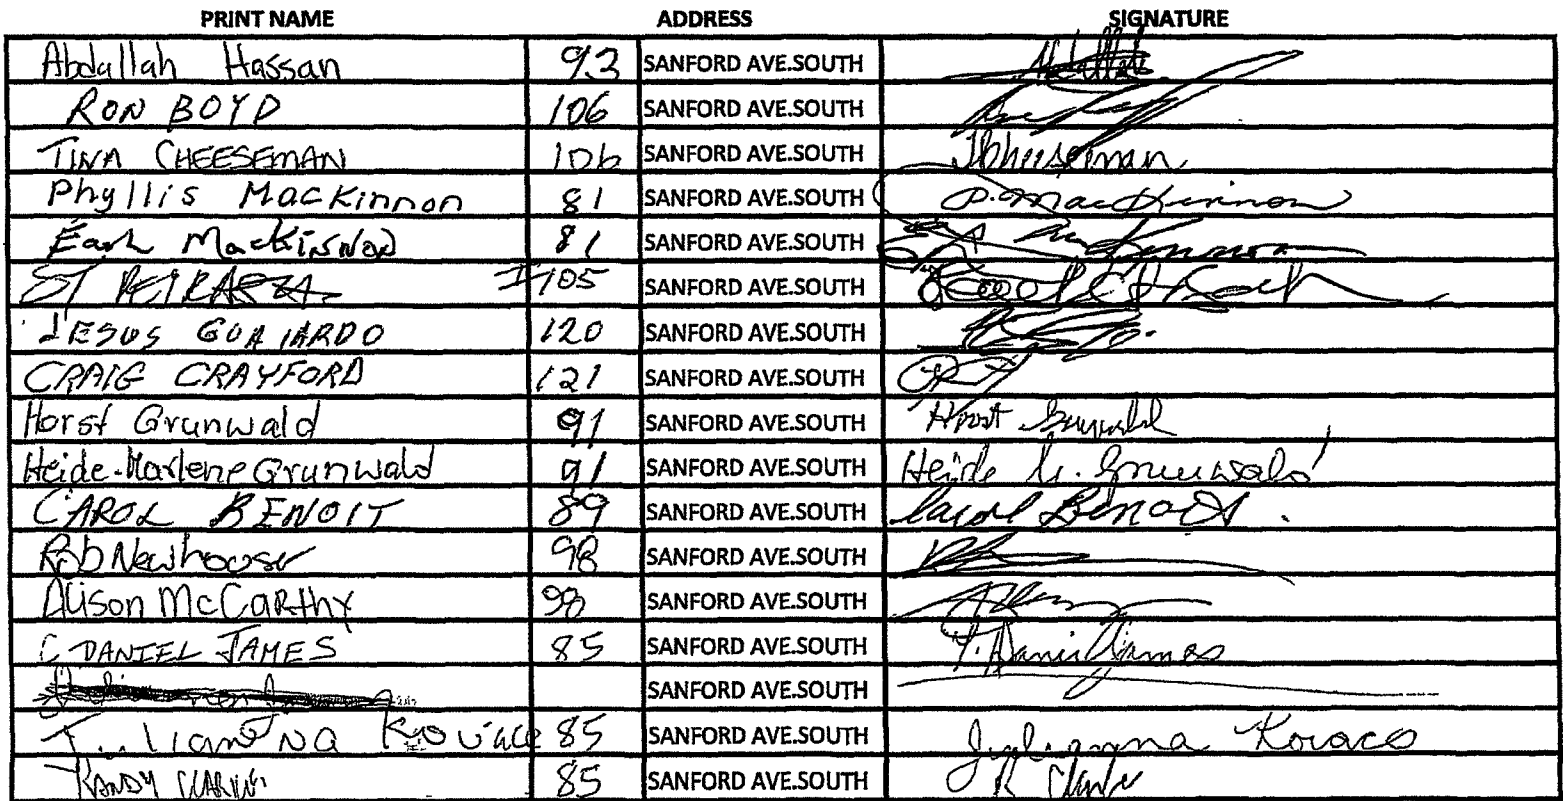 PRINT NAME ADDRESS SIGNATURE
Abdallah Hassan 93 SANFORD AVE.SOUTH
RON BOYD 106 SANFORD AVE.SOUTH
TINA CHEESEMAN 106 SANFORD AVE.SOUTH
Phyllis MacKinnon 81 SANFORD AVE.SOUTH P. MacKinnon
Earl MacKinnon 81 SANFORD AVE.SOUTH
105 SANFORD AVE.SOUTH
JESUS GUAJARDO 120 SANFORD AVE.SOUTH
CRAIG CRAYFORD 121 SANFORD AVE.SOUTH
Horst Grunwald 91 SANFORD AVE.SOUTH Horst Grunwald
Heide-Marlene Grunwald 91 SANFORD AVE.SOUTH Heide M. Grunwald
CAROL BENOIT 89 SANFORD AVE.SOUTH Carol Benoit.
Rob Newhouser 98 SANFORD AVE.SOUTH
Alison McCarthy 98 SANFORD AVE.SOUTH
C DANIEL JAMES 85 SANFORD AVE.SOUTH
SANFORD AVE.SOUTH
85 SANFORD AVE.SOUTH Julianna Kovacs
RANDY CLARKE 85 SANFORD AVE.SOUTH R Clarke